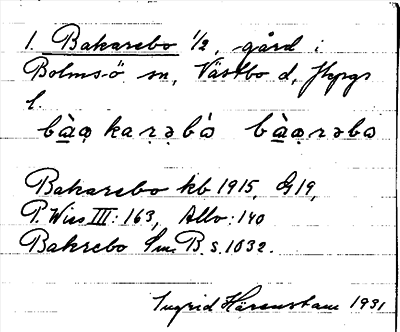 1. Bakarebo 1/2, gård i
Bolmsö sn, Västbo d, Jkpgs
l.
bàa̤ kaṛəbó bàa̤rəbo
Bakarebo kb 1915, G19,
P. Wies III: 163, Allv: 140
Bakrebo Sm. B. s. 1032.
Ingrid Härenstam 1931